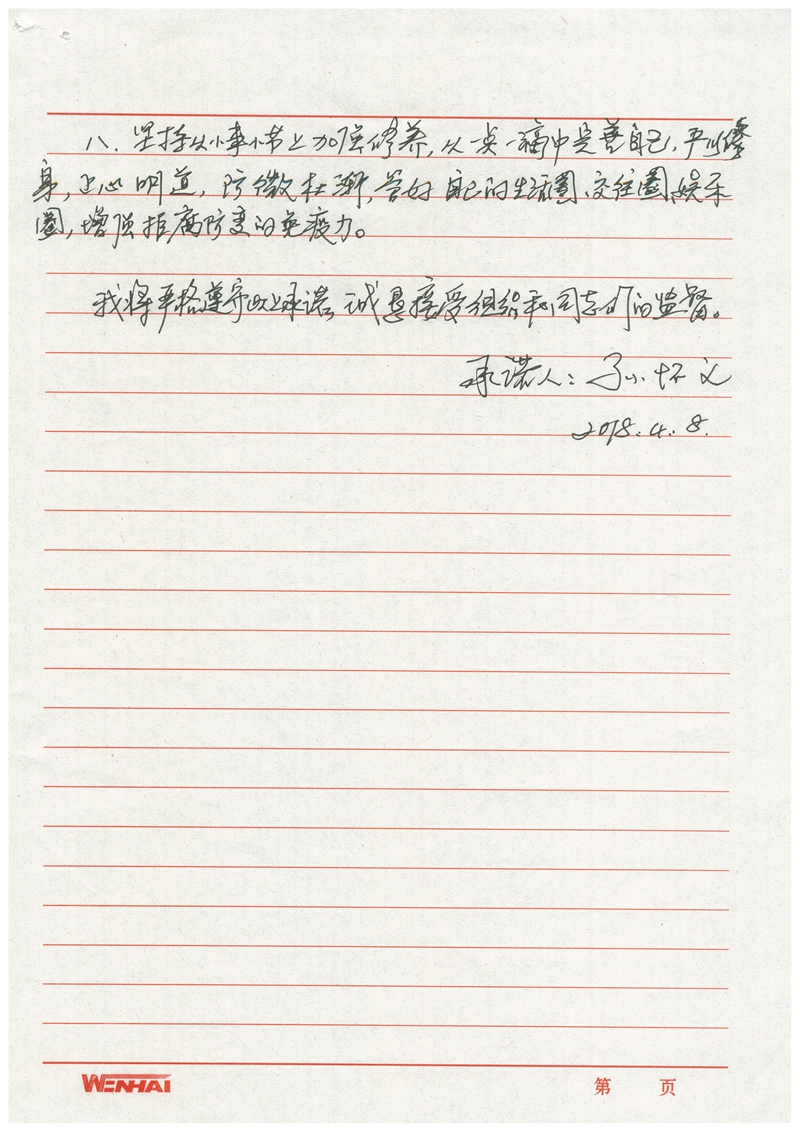 八、坚持从小事小节上加强修养,从一点一滴中完善自己,严以修
身,正心明道,防微杜渐,管好自己的生活圈、交往圈、娱乐
圈,增强拒腐防变的免疫力。
我将严格遵守以上承诺,诚恳接受组织和同志们的监督。
承诺人:孙怀文
2018.4.8.
WENHAI
第 页